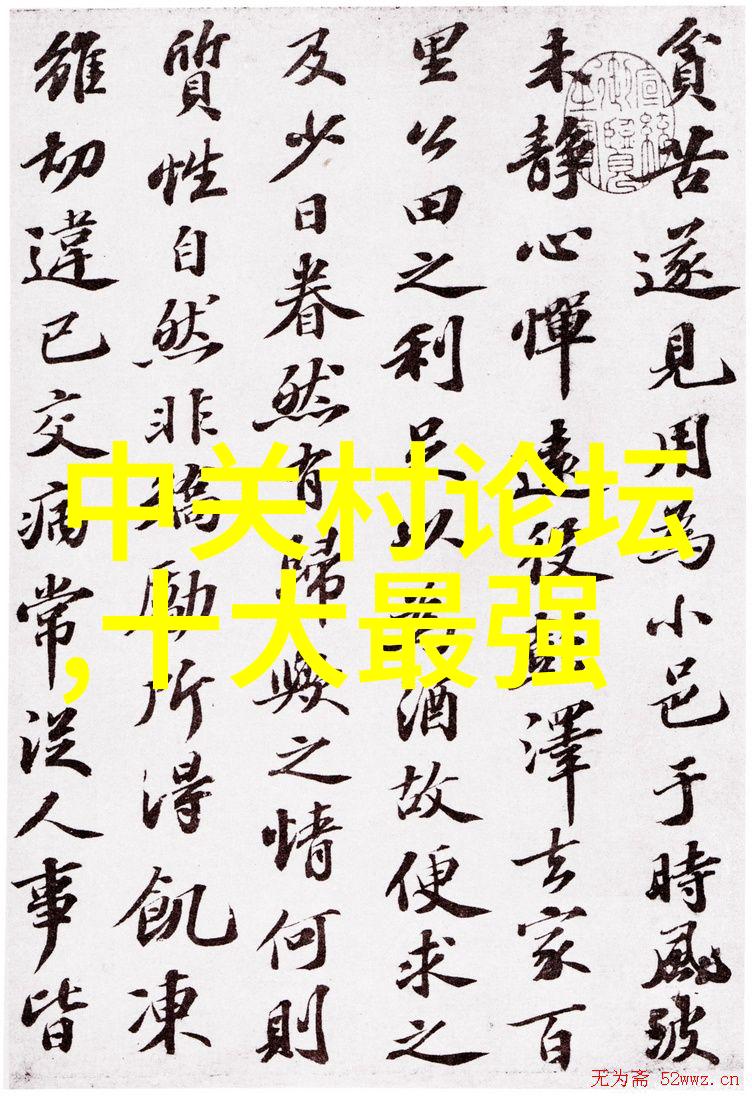 貧苦遂見用為小邑于時風波
未靜心憚遠役彭澤去家百
里公田之利足以為酒故便求之
及少日眷然有歸歟之情何則
質性自然非矯勵所得飢凍
雖切違已交病常從人事皆
中关村论坛
,十大最强
无为斋 52wwz.cn